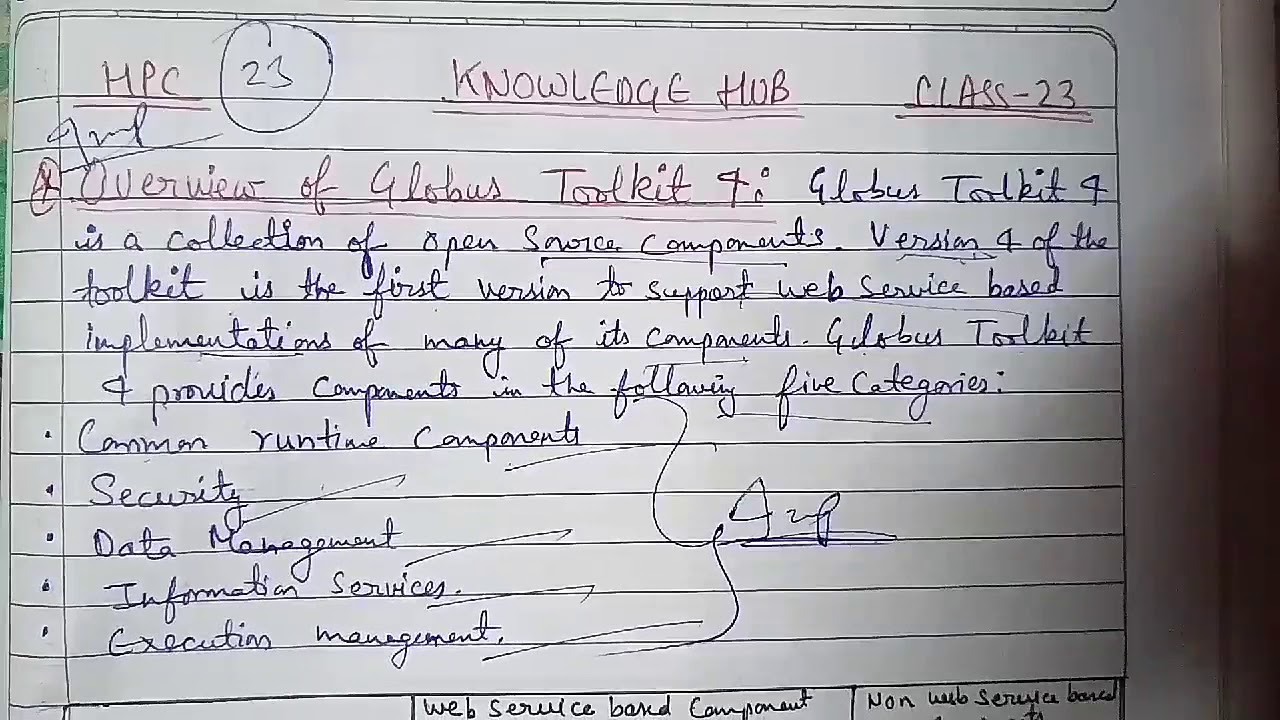 HPC 23 KNOWLEDGE HUB CLASS-23
Imp
Overview of Globus Toolkit 4: Globus Toolkit 4
is a collection of open source components. Version 4 of the
toolkit is the first version to support web service based
implementations of many of its components. Globus Toolkit
4 provides components in the following five categories:
• Common runtime components
• Security
• Data Management
• Information Services.
• Execution management.
Imp
Web service based component
Non web service based